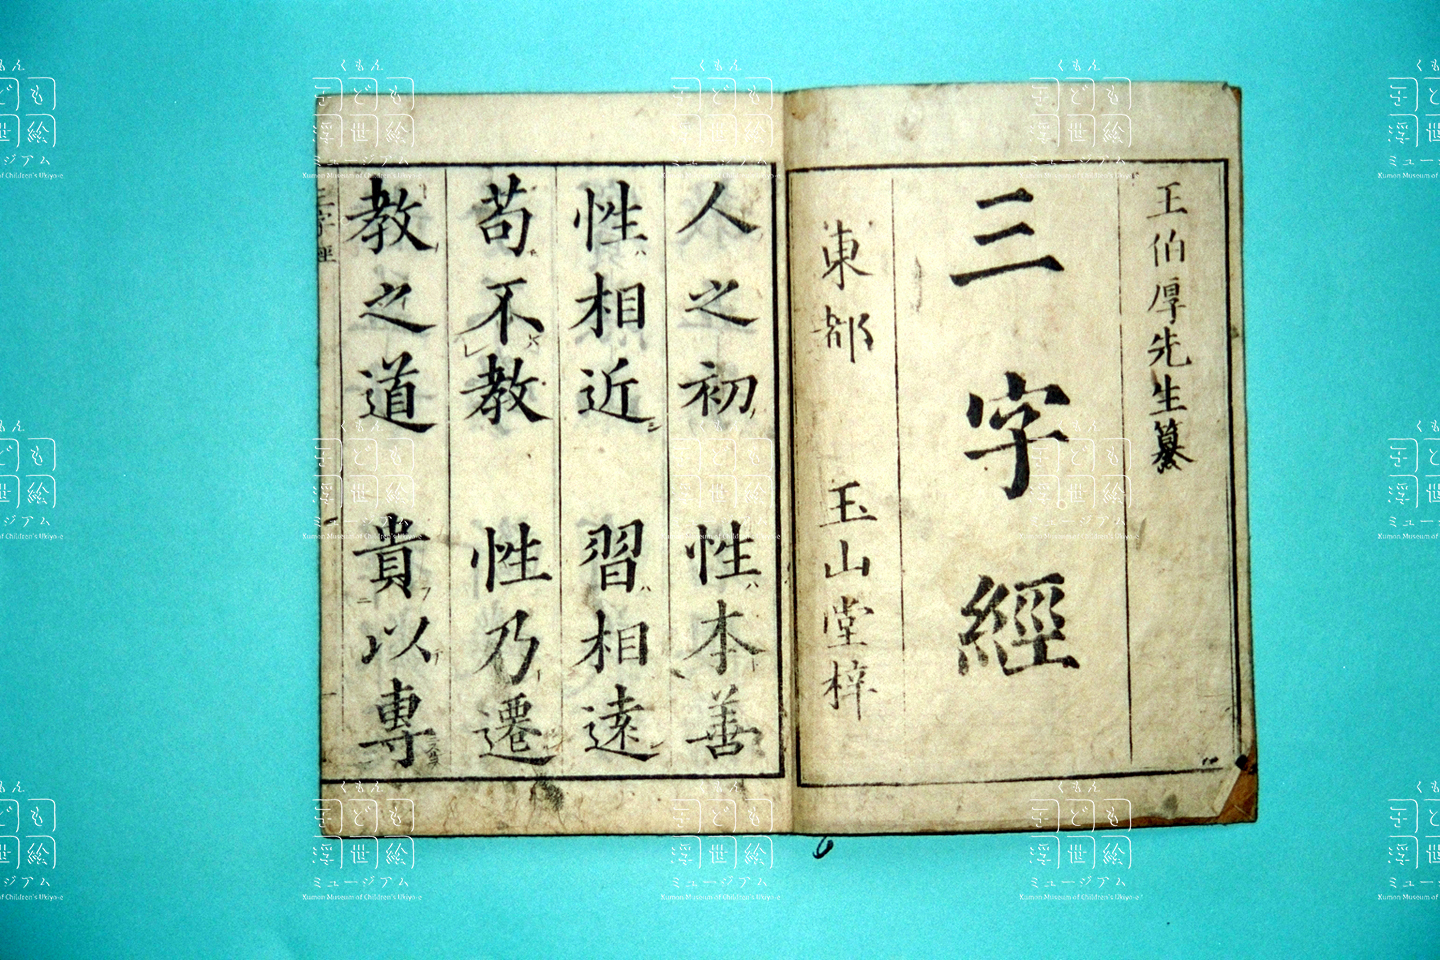 王伯厚先生纂
三字經
東都 玉山堂梓
人之初 性本善
性相近 習相遠
苟不教 性乃遷
教之道 貴以專
三字經
くもん
子ども
浮世絵
ミュージアム
Kumon Museum of Children's Ukiyo-e